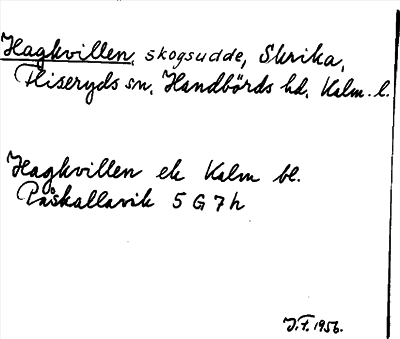 Hagkvillen, skogsudde, Skrika,
Fliseryds sn. Handbörds hd. Kalm. l.
Hagkvillen ek Kalm bl.
Påskallavik 5 G 7 h
J.F. 1956.